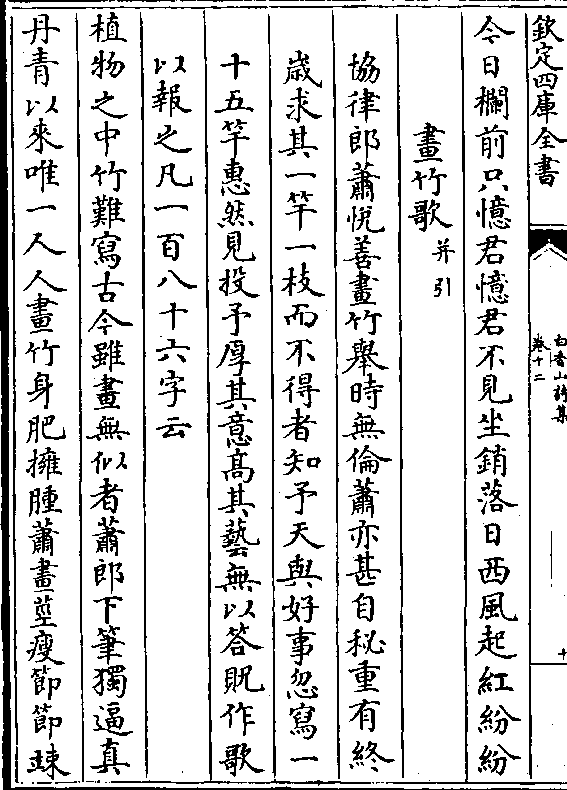 欽定四庫全書
白香山詩集
卷十二
十
今日欄前只憶君憶君不見坐銷落日西風起紅紛紛
畫竹歌并引
協律郎蕭悅善畫竹舉時無倫蕭亦甚自秘重有終
歲求其一竿一枝而不得者知予天與好事忽寫一
十五竿惠然見投予厚其意高其藝無以答貺作歌
以報之凡一百八十六字云
植物之中竹難寫古今雖畫無似者蕭郎下筆獨逼真
丹青以來唯一人人畫竹身肥擁腫蕭畫莖瘦節節竦